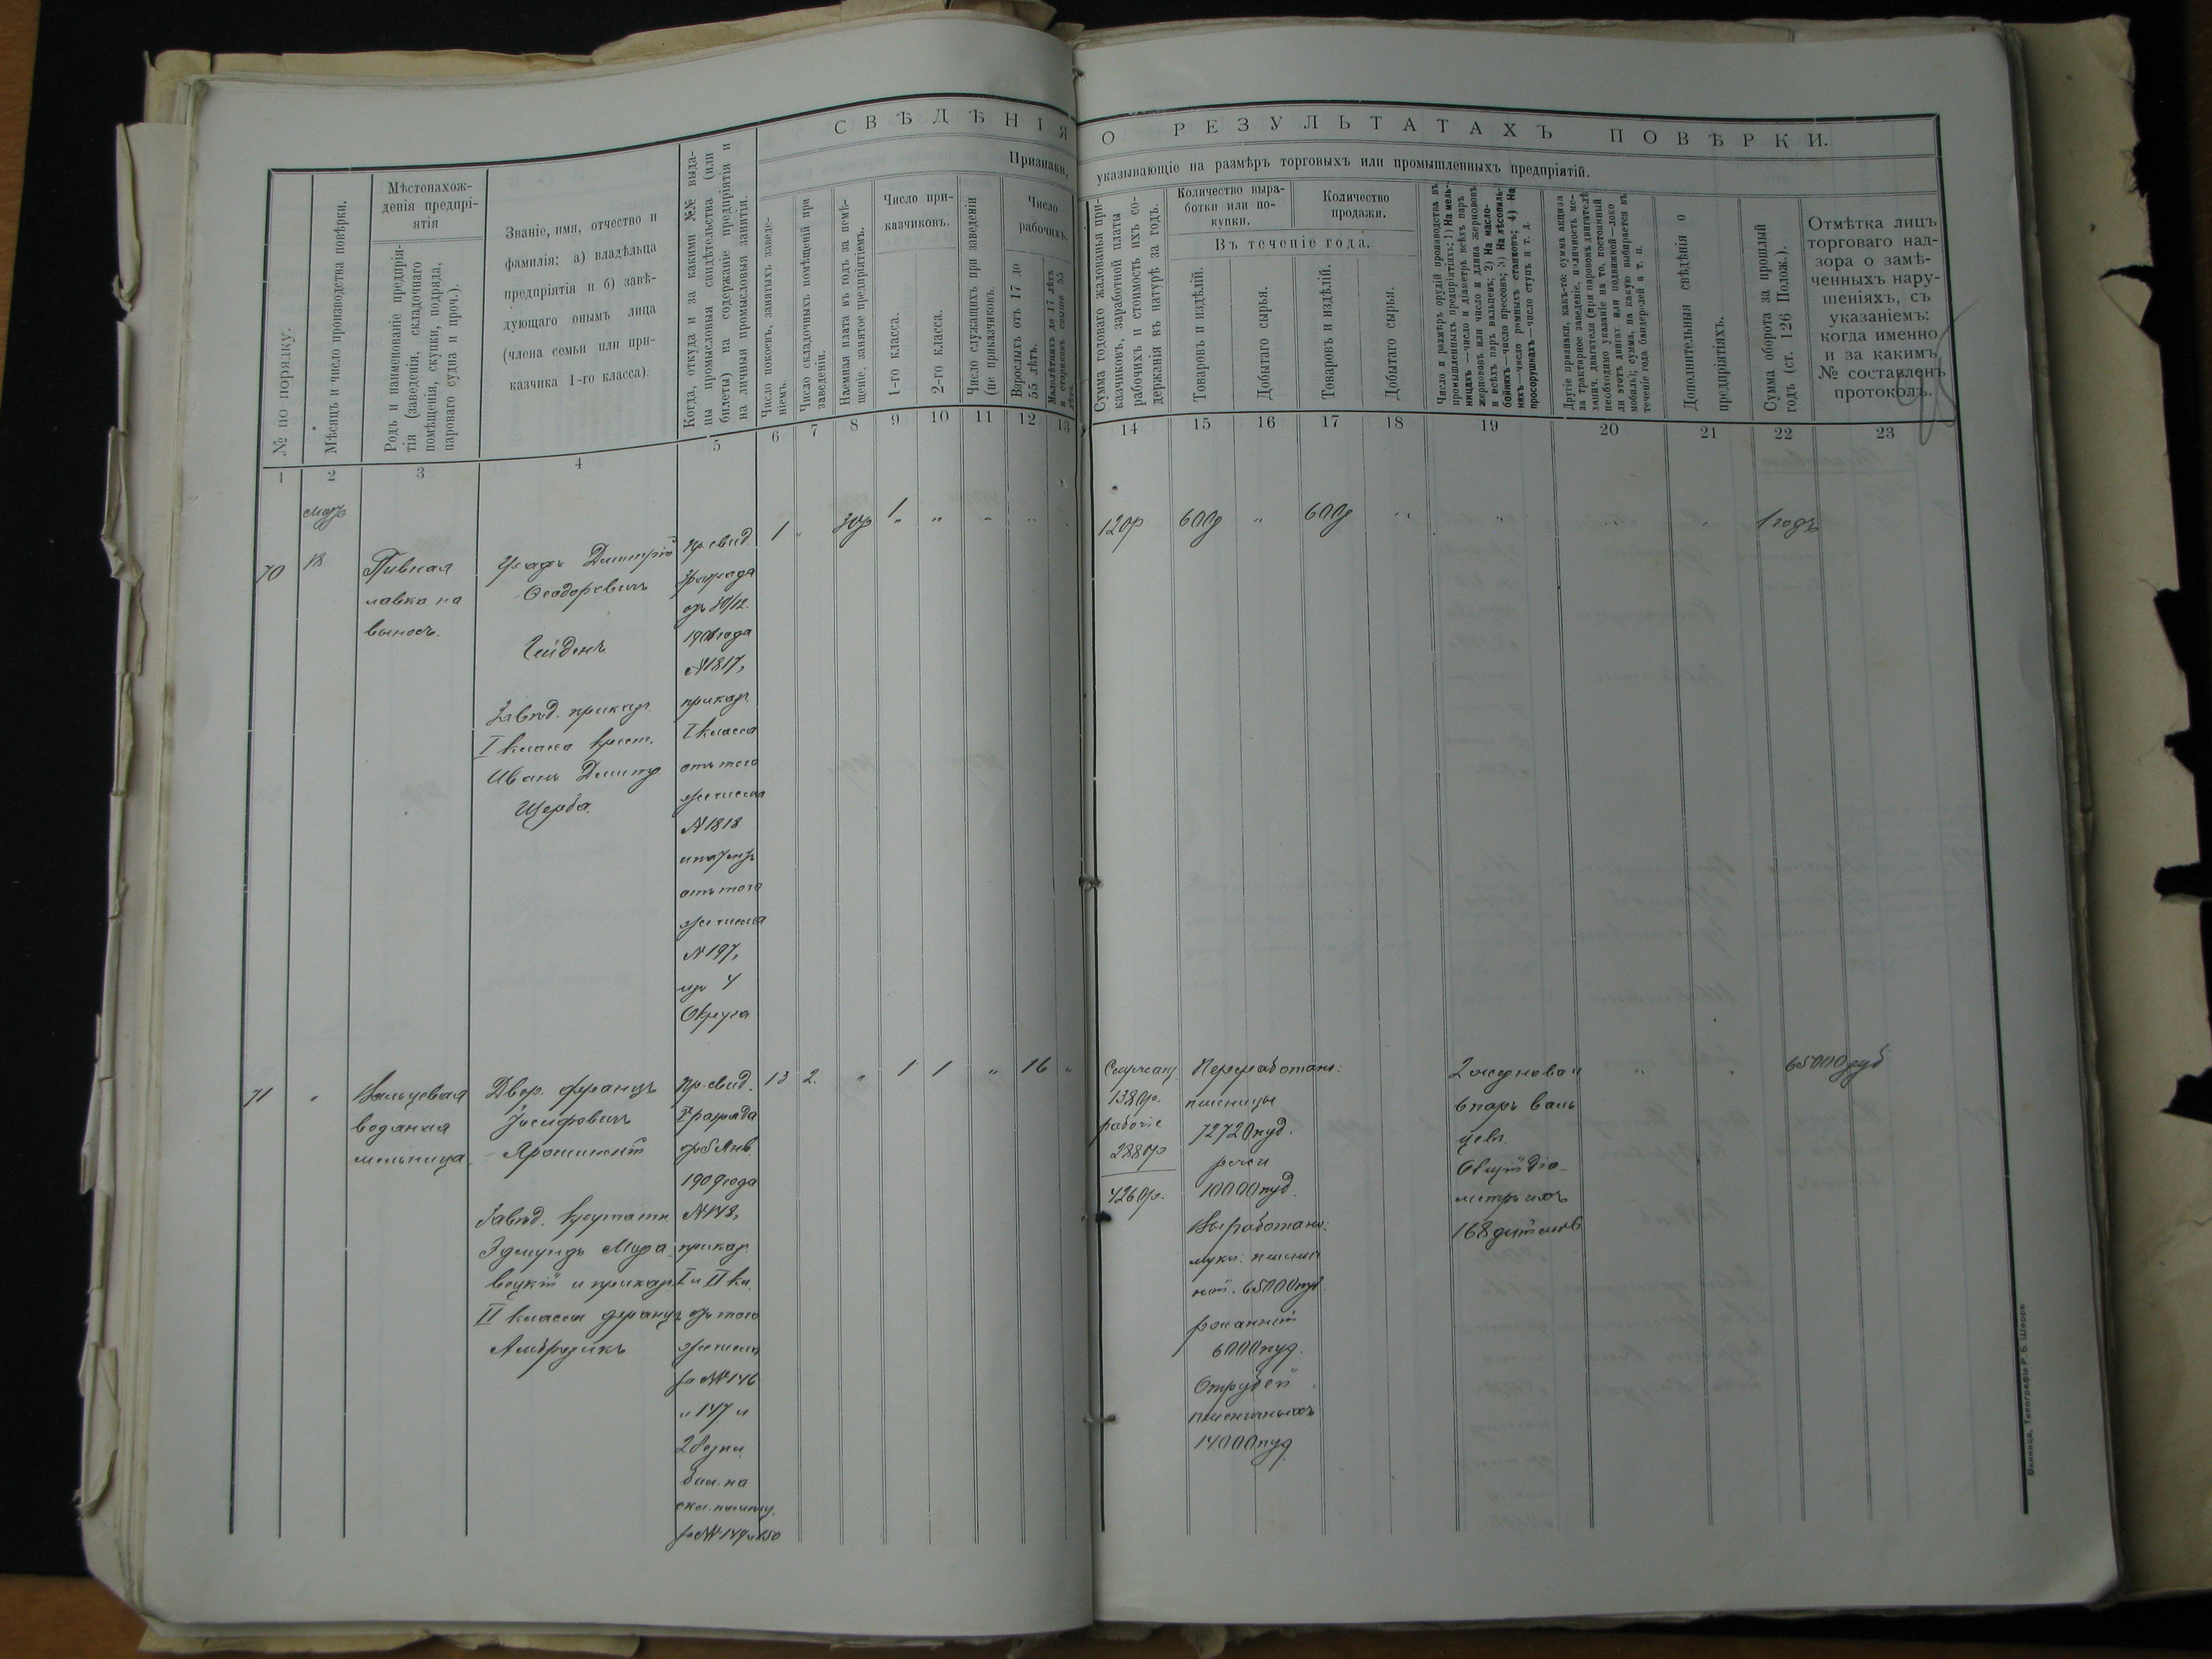 СВѢДѢНІЯ О РЕЗУЛЬТАТАХЪ ПОВѢРКИ.
Признаки, указывающіе на размѣръ торговыхъ или промышленныхъ предпріятій.
№ по порядку.
Мѣсяцъ и число производства повѣрки.
Мѣстонахож-
денія предпрі-
ятія
Родъ и наименованіе предпрія-
тія (заведенія, складочнаго
помѣщенія, скупки, подряда,
парового судна и проч.).
Званіе, имя, отчество и
фамилія: а) владѣльца
предпріятія и б) завѣ-
дующаго онымъ лица
(члена семьи или при-
казчика 1-го класса).
Когда, откуда и за какими №№ выда-
ны промысловыя свидѣтельства (или
билеты) на содержаніе предпріятія и
на личныя промысловыя занятія.
Число покоевъ, занятыхъ заведе-
ніемъ.
Число складочныхъ помѣщеній при
заведеніи.
Наемная плата въ годъ за помѣ-
щеніе, занятое предпріятіемъ.
Число при-
казчиковъ.
1-го класса.
2-го класса.
Число служащихъ при заведеніи
(не приказчиковъ.
Число
рабочихъ.
Взрослыхъ отъ 17 до
55 лѣтъ.
Малолѣтнихъ до 17 лѣтъ
и стариковъ свыше 55
лѣтъ.
Сумма годоваго жалованья при-
казчиковъ, заработной платы
рабочихъ и стоимость ихъ со-
держанія въ натурѣ за годъ.
Количество выра-
ботки или по-
купки.
Количество
продажи.
Въ теченіе года.
Товаровъ и издѣлій.
Добытаго сырья.
Товаровъ и издѣлій.
Добытаго сырья.
Число и размѣръ орудій производства въ
промышленныхъ предпріятіяхъ: 1) На мель-
ницахъ—число и діаметръ всѣхъ паръ
жернововъ или число и длина жернововъ
и всѣхъ паръ вальцевъ; 2) На масло-
бойняхъ—число прессовъ; 3) На лѣсопиль-
няхъ—число рамныхъ станковъ; 4) На
просорушкахъ—число ступъ и т. д.
Другіе признаки, какъ-то: сумма акциза
за трактирное заведеніе, наличность ме-
ханич. двигателя (при паровомъ двигателѣ
необходимо указаніе на то, постоянный
ли этотъ двигат. или подвижной—локо
мобиль); сумма, на какую выбирается въ
теченіе года бандеролей и т. п.
Дополнительныя свѣдѣнія о
предпріятіяхъ.
Сумма оборота за прошлый
годъ (ст. 126 Полож.).
Отмѣтка лицъ
торговаго над-
зора о замѣ-
ченныхъ нару-
шеніяхъ, съ
указаніемъ:
когда именно
и за какимъ
№ составленъ
протоколъ.
1 2 3 4 5 6 7 8 9 10 11 12 13 14 15 16 17 18 19 20 21 22 23
мартъ
70 18
Пивная
лавка на
выносъ.
Графъ Дмитрій
Ѳеодоровичъ
Гейденъ
Завѣд. приказ.
I класса крест.
Иванъ Дмитр.
Щерба.
пр. свид.
разряда
отъ 30/12.
1908 года
№1817,
приказ.
I класса
отъ того
же числа
№1818
и патентъ
отъ того
же числа
№197,
изъ 4
Округа
1 " 30р 1 " " " " "
120р 600р " 600р " " " " 1 годъ
71 "
Вальцевая
водяная
мельница
Двор. Францъ
Іосифовичъ
Ярошинскій
Завѣд.
Эдмундъ
и приказ.
II класса Францъ
пр. свид.
разряда
отъ 5 Янв.
1909 года
№148,
приказ.
I и II кл.
отъ того
же числа
за №146
и 147 и
2 безпл.
бил. на
скл. помѣщ.
за №149 и 150
13 2. " 1 1 " 16 "
Служащ.
1380р.
рабочіе
2880р
4260р.
Переработано:
пшеницы
72720 пуд.
ржи
10000 пуд.
Выработано:
муки: пшенич
ной. 65000 пуд.
ржанной
6000 пуд.
Отрубей
пшеничныхъ
14000 пуд
2 жернова и
6 паръ валь
цевъ.
Общій діа-
метръ ихъ
168 дюймовъ
" " 65000 руб
Винница, Типографія Р. Б. Шеровъ